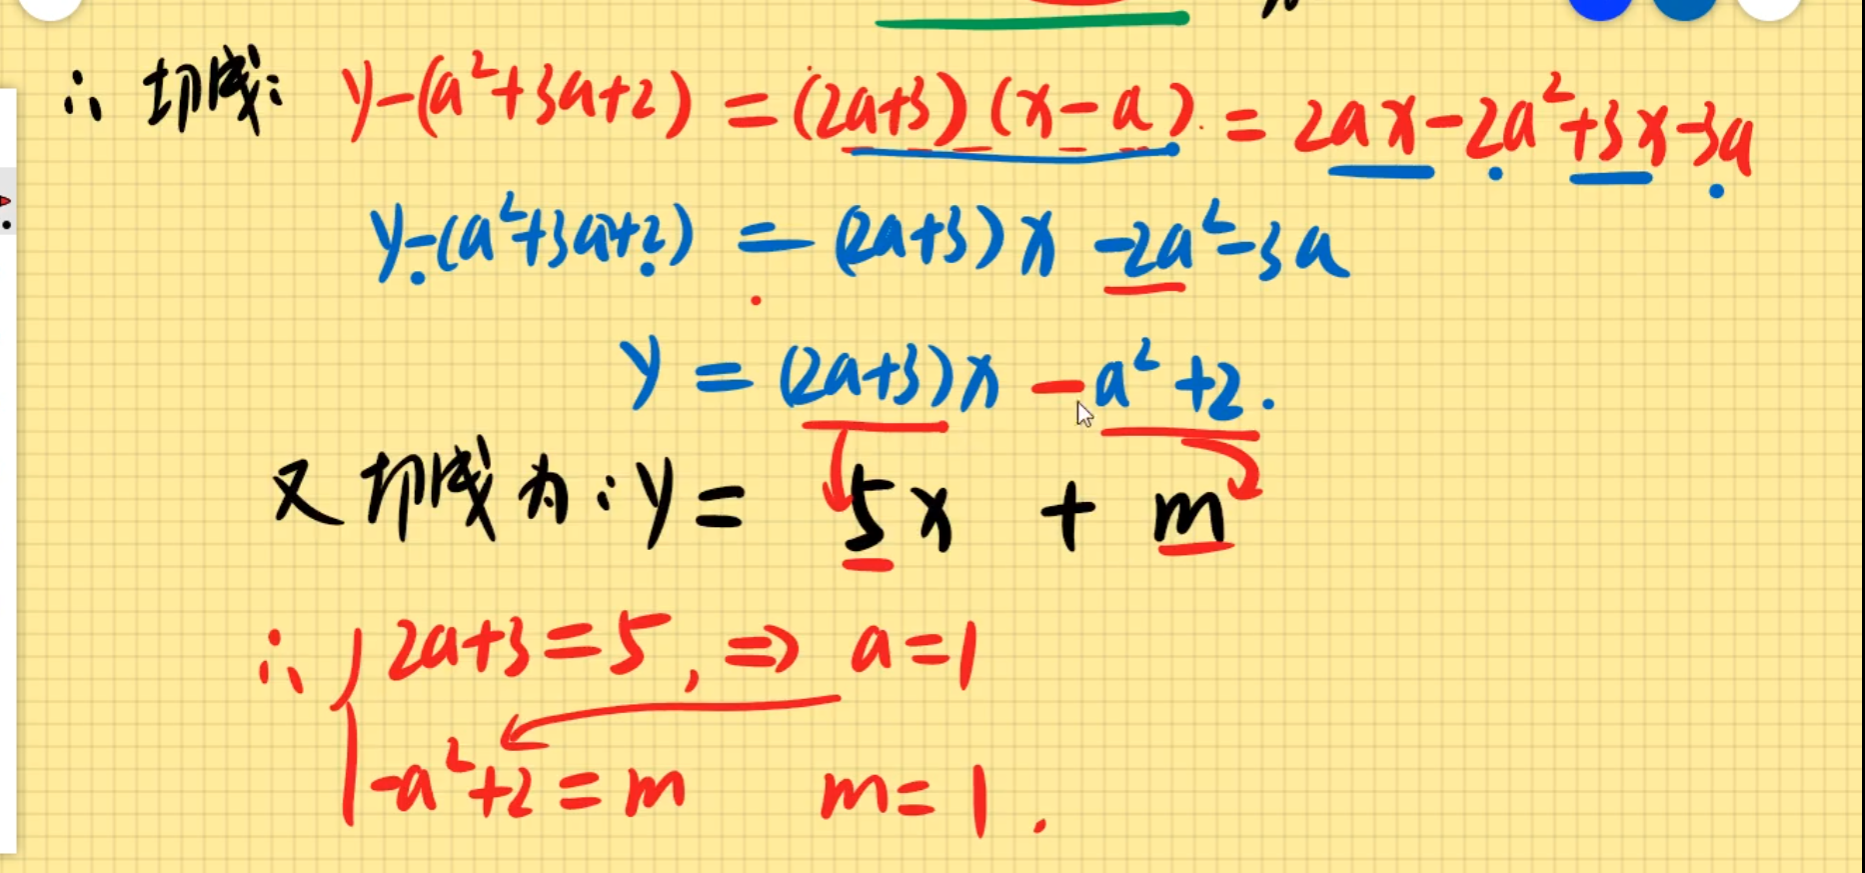 ∴ 切线: y-(a²+3a+2) = (2a+3)(x-a) = 2ax-2a²+3x-3a
y-(a²+3a+2) = (2a+3)x -2a²-3a
y = (2a+3)x -a²+2.
又切线为: y = 5x + m
∴ { 2a+3=5, ⇒ a=1
-a²+2=m m=1.